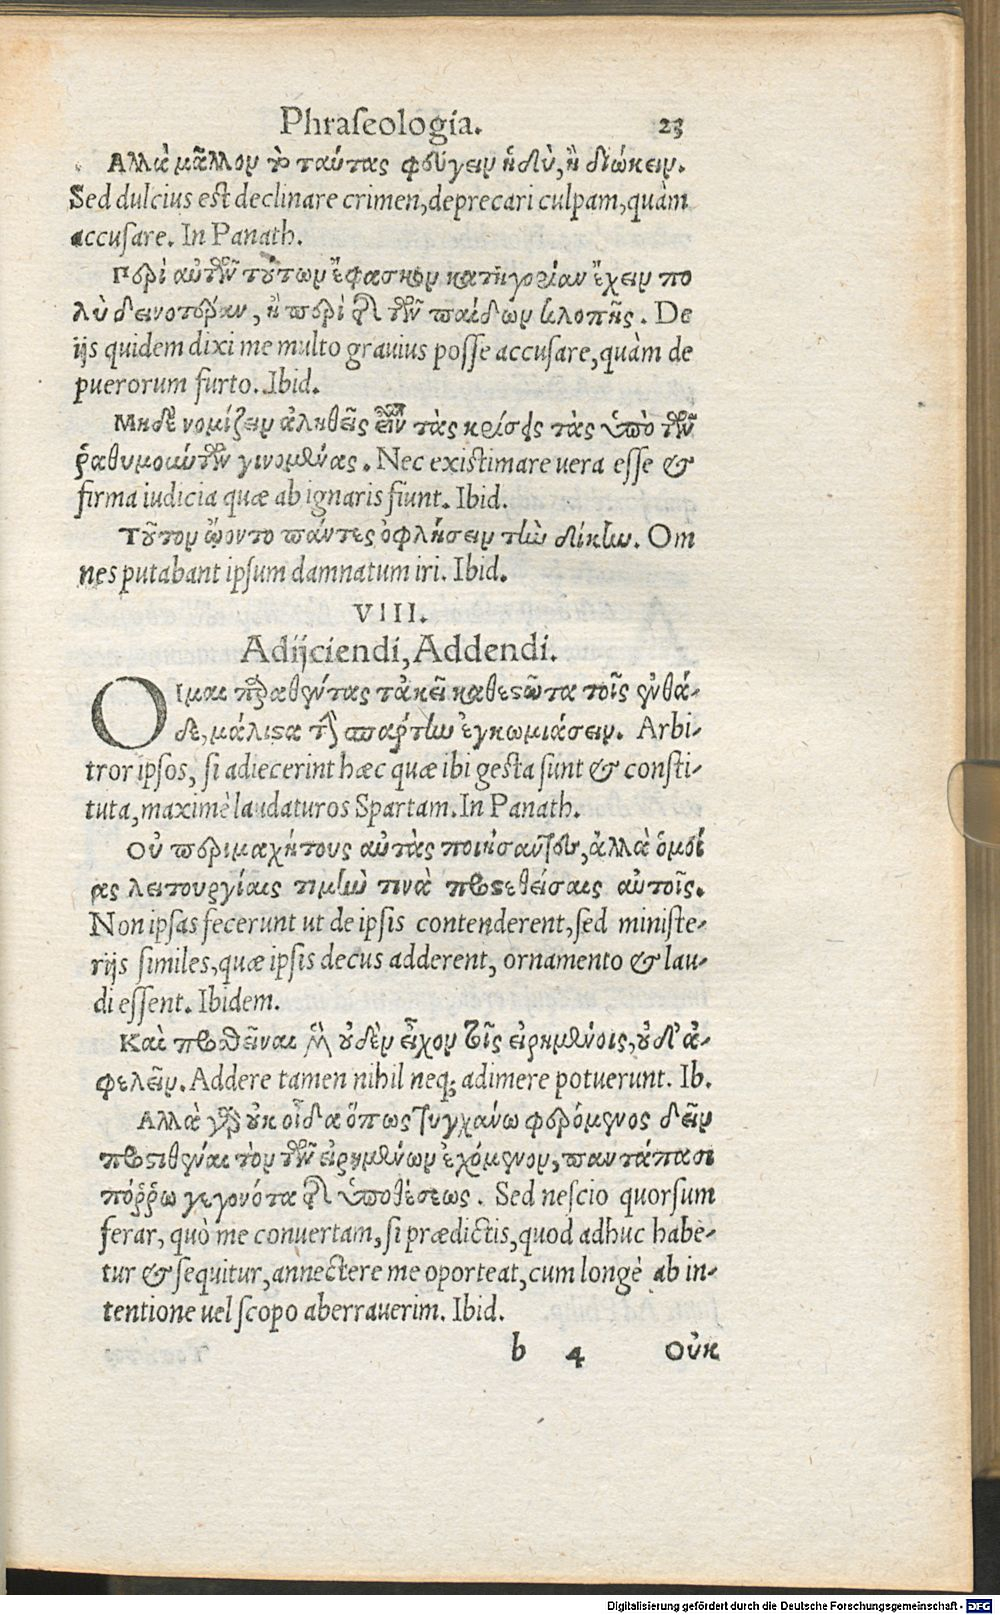 Phraseologia. 23
Αλλὰ μᾶλλον τὸ ταύτας φεύγειν ἡδὺ, ἢ διώκειν.
Sed dulcius est declinare crimen, deprecari culpam, quàm
accusare. In Panath.
Περὶ αὐτῶν τούτων ἔφασκον κατηγορίαν ἔχειν πο
λὺ δεινοτέραν, ἢ περὶ τῆς τῶν παίδων κλοπῆς. De
ijs quidem dixi me multo grauius posse accusare, quàm de
puerorum furto. Ibid.
Μηδὲ νομίζειν ἀληθεῖς εἶναι τὰς κρίσεις τὰς ὑπὸ τῶν
ῥαθυμούντων γινομένας. Nec existimare uera esse &
firma iudicia quæ ab ignaris fiunt. Ibid.
Τοῦτον ᾤοντο πάντες ὀφλήσειν τὴν δίκην. Om
nes putabant ipsum damnatum iri. Ibid.
VIII.
Adijciendi, Addendi.
Οἶμαι προσθέντας τἀκεῖ καθεστῶτα τοῖς ἐνθά-
δε, μάλιστα τὴν σπάρτην ἐγκωμιάσειν. Arbi-
tror ipsos, si adiecerint hæc quæ ibi gesta sunt & consti-
tuta, maximè laudaturos Spartam. In Panath.
Οὐ περιμαχήτους αὐτὰς ποιήσαντες, ἀλλὰ ὁμοί
ας λειτουργίαις τιμὴν τινὰ προστεθείσαις αὐτοῖς.
Non ipsas fecerunt ut de ipsis contenderent, sed ministe-
rijs similes, quæ ipsis decus adderent, ornamento & lau-
di essent. Ibidem.
Καὶ προσθεῖναι μὲν οὐδὲν εἶχον τοῖς εἰρημένοις, οὐδ' ἀ-
φελεῖν. Addere tamen nihil neq; adimere potuerunt. Ib.
Αλλὰ γὰρ οὐκ οἶδα ὅπως τυγχάνω φερόμενος δεῖν
προστιθέναι τὸν τῶν εἰρημένων ἐχόμενον, παντάπασι
πόῤῥω γεγονότα τῆς ὑποθέσεως. Sed nescio quorsum
ferar, quò me conuertam, si prædictis, quod adhuc habe-
tur & sequitur, annectere me oporteat, cum longè ab in-
tentione uel scopo aberrauerim. Ibid.
b 4 Οὐκ
Digitalisierung gefördert durch die Deutsche Forschungsgemeinschaft - DFG